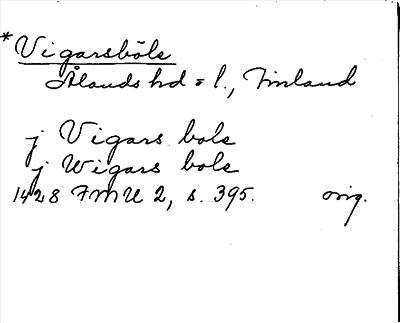 *Vigarsböle
Ålands hd o l., Finland
j Vigars bole
j Wigars bole
1428 FMU 2, s. 395. orig.